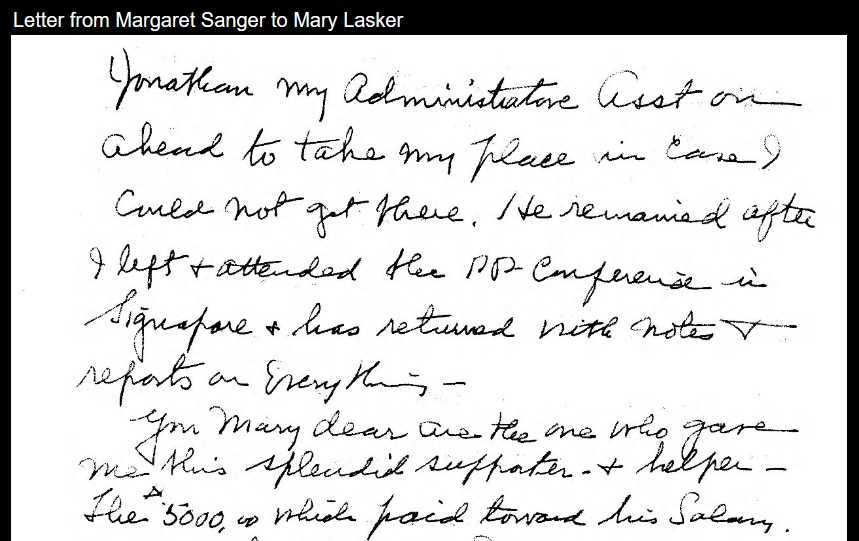 Letter from Margaret Sanger to Mary Lasker
Jonathan my Administrative Asst on
ahead to take my place in case I
could not get there. He remained after
I left + attended the PP Conference in
Signapore + has returned with notes +
reports on Everything –
You Mary dear are the one who gave
me this splendid supporter - + helper –
The 5000,00 which paid toward his Salary.